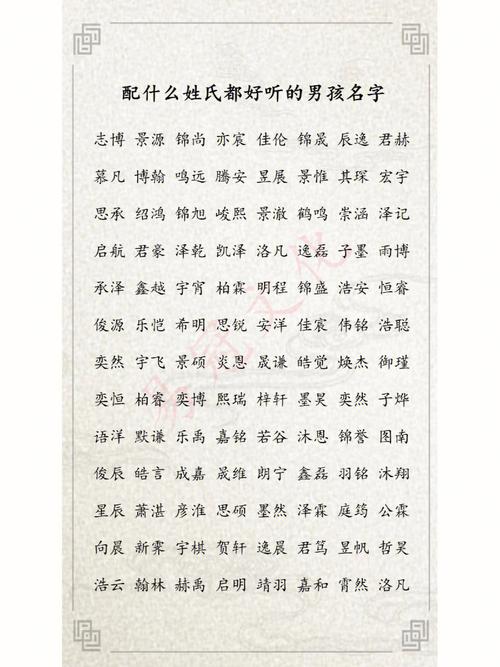 配什么姓氏都好听的男孩名字
志博 景源 锦尚 亦宸 佳伦 锦晟 辰逸 君赫
慕凡 博翰 鸣远 腾安 昱展 景惟 其琛 宏宇
思承 绍鸿 锦旭 峻熙 景澈 鹤鸣 崇涵 泽记
启航 君豪 泽乾 凯泽 洛凡 逸磊 子墨 雨博
承泽 鑫越 宇宵 柏霖 明程 锦盛 浩安 恒睿
俊源 乐恺 希明 思锐 安洋 佳宸 伟铭 浩聪
奕然 宇飞 景硕 炎恩 晟谦 皓觉 焕杰 御瑾
奕恒 柏睿 奕博 熙瑞 梓轩 墨昊 奕然 子烨
语洋 默谦 乐禹 嘉铭 若谷 沐恩 锦誉 图南
俊辰 皓言 成嘉 晟维 朗宁 鑫磊 羽铭 沐翔
星辰 萧湛 彦淮 思硕 墨然 泽霖 庭筠 公霖
向晨 新霁 宇棋 贺轩 逸晨 君笃 昱帆 哲昊
浩云 翰林 赫禹 启明 靖羽 嘉和 霄然 洛凡